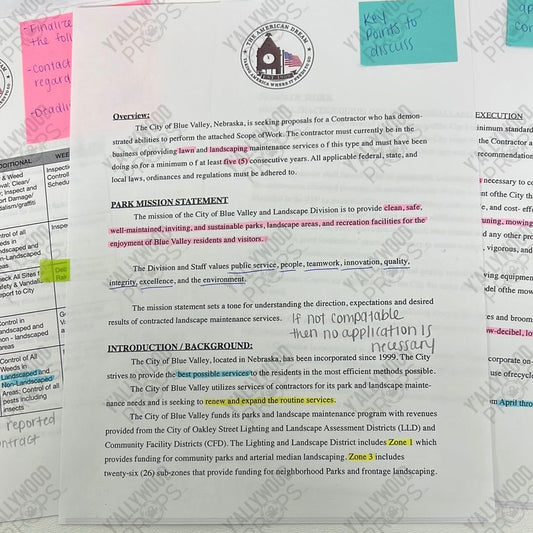 -Finalize
the foll
-Contact
regard
-Deadlin
Key
Points to
discuss
THE AMERICAN DREAM
Overview:
The City of Blue Valley, Nebraska, is seeking proposals for a Contractor who has demon-
strated abilities to perform the attached Scope of Work. The contractor must currently be in the
business of providing lawn and landscaping maintenance services o f this type and must have been
doing so for a minimum o f at least five (5) consecutive years. All applicable federal, state, and
local laws, ordinances and regulations must be adhered to.
PARK MISSION STATEMENT
The mission of the City of Blue Valley and Landscape Division is to provide clean, safe,
well-maintained, inviting, and sustainable parks, landscape areas, and recreation facilities for the
enjoyment of Blue Valley residents and visitors.
The Division and Staff values public service, people, teamwork, innovation, quality,
integrity, excellence, and the environment.
The mission statement sets a tone for understanding the direction, expectations and desired
results of contracted landscape maintenance services.
If not compatable
then no application is
necessary
INTRODUCTION / BACKGROUND:
The City of Blue Valley, located in Nebraska, has been incorporated since 1999. The City
strives to provide the best possible services to the residents in the most efficient methods possible.
The City of Blue Valley utilizes services of contractors for its park and landscape mainte-
nance needs and is seeking to renew and expand the routine services.
The City of Blue Valley funds its parks and landscape maintenance program with revenues
provided from the City of Oakley Street Lighting and Landscape Assessment Districts (LLD) and
Community Facility Districts (CFD). The Lighting and Landscape District includes Zone 1 which
provides funding for community parks and arterial median landscaping. Zone 3 includes
twenty-six (26) sub-zones that provide funding for neighborhood Parks and frontage landscaping.
DITIONAL WEE
& Weed
Inspect and
ort Damage/
dalism/graffiti
Inspec
Control
Schedu
ntrol of all
eeds in
ndscaped and
n-Landscaped
eas
Inspe
eck All Sites f
fety & Vandali
port to City
Control in
andscaped and
on - landscaped
areas
Control of All
Weeds in
Landscaped and
Non-Landscaped
Areas; Control of all
pests including
insects
reported
ontract
EXECUTION
inimum standard
the Contractor a
recommendation
necessary to co
nt ofthe City th
e, and cost- effe
uning, mowing
nd any other pro
, vigorous, and
ving equipment
odel ofthe mov
es and broom
low-decibel, lo
corporate on-
use ofrecycle
m April throu
Y'ALLYWOOD
PROPS